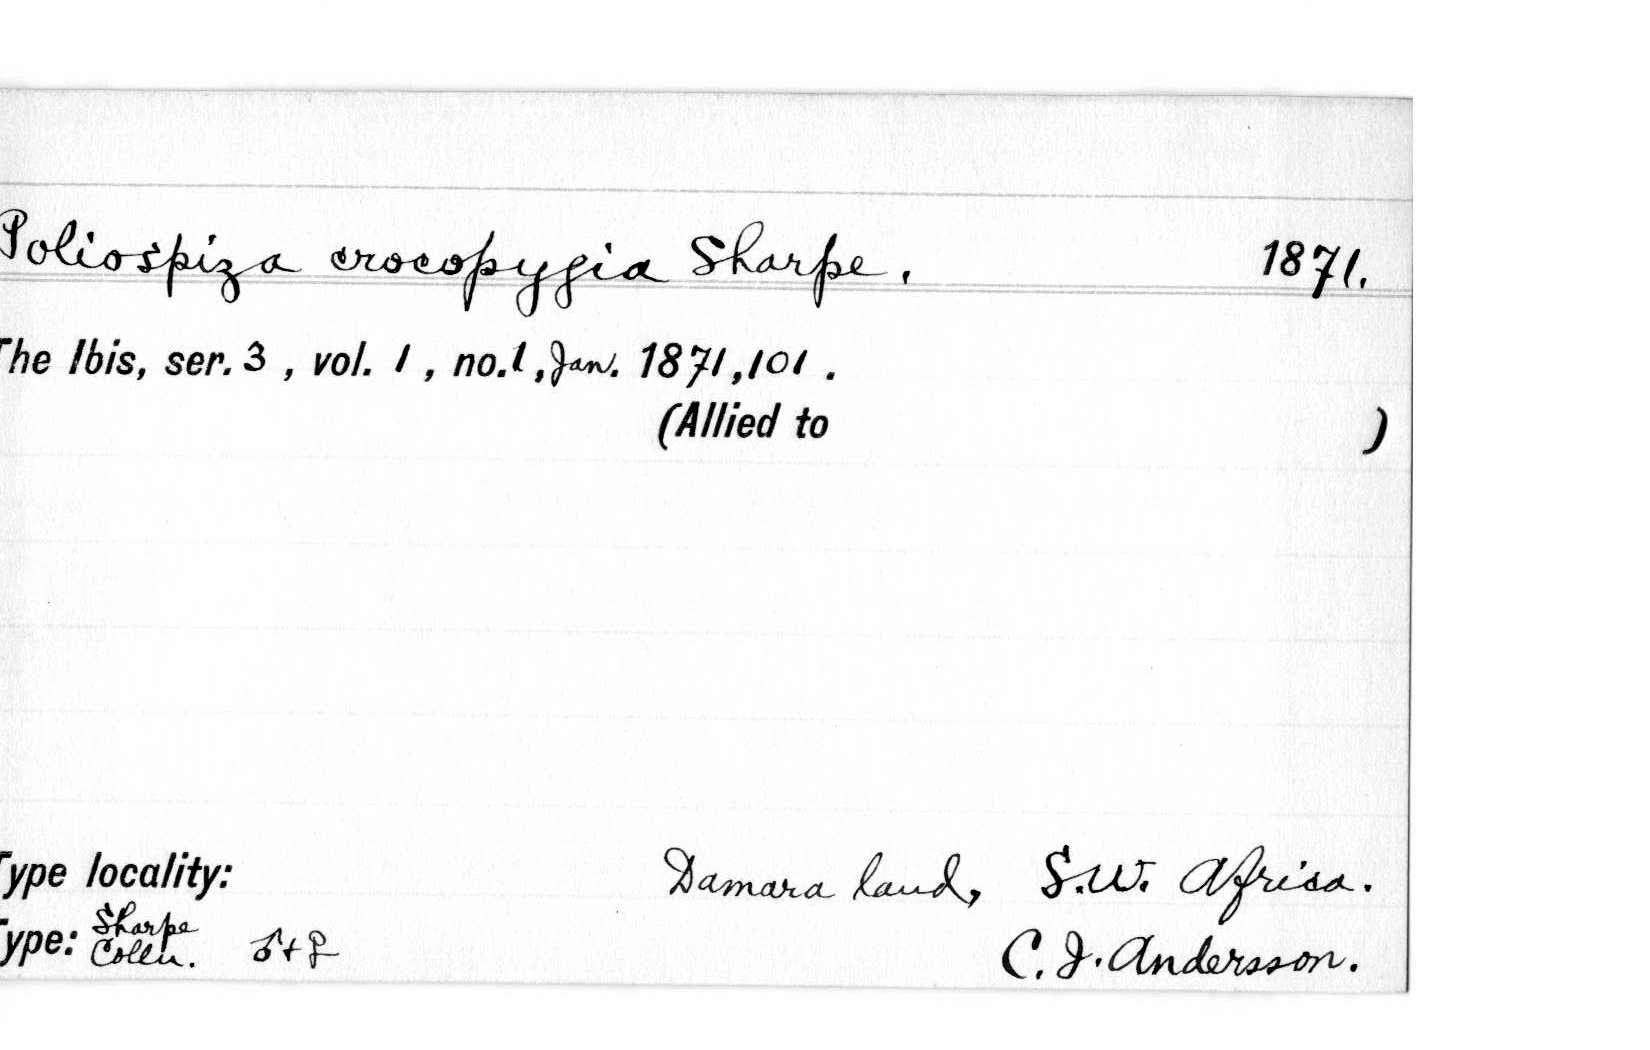 Poliospiza crocopygia Sharpe. 1871.
The Ibis, ser. 3, vol. 1, no. 1, Jan. 1871, 101.
(Allied to )
Type locality: Damara land, S.W. Africa.
Type: Sharpe Colln. ♂+♀ C. J. Andersson.